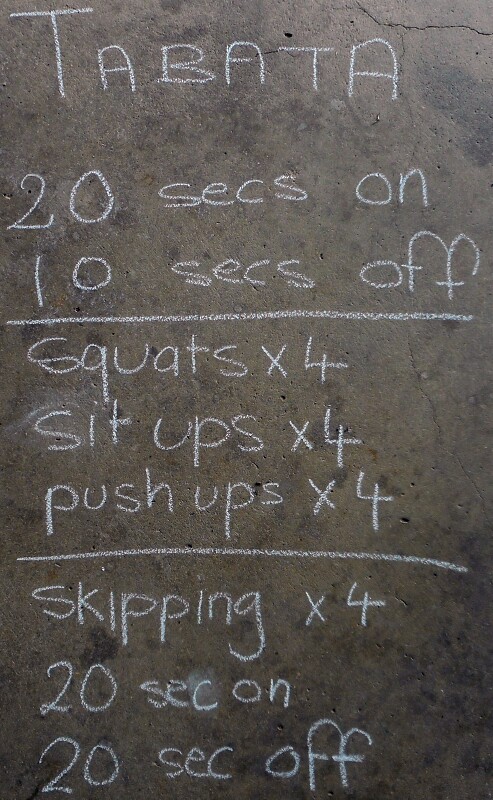 TABATA
20 secs on
10 secs off
Squats x 4
Sit ups x 4
push ups x 4
Skipping x 4
20 sec on
20 sec off